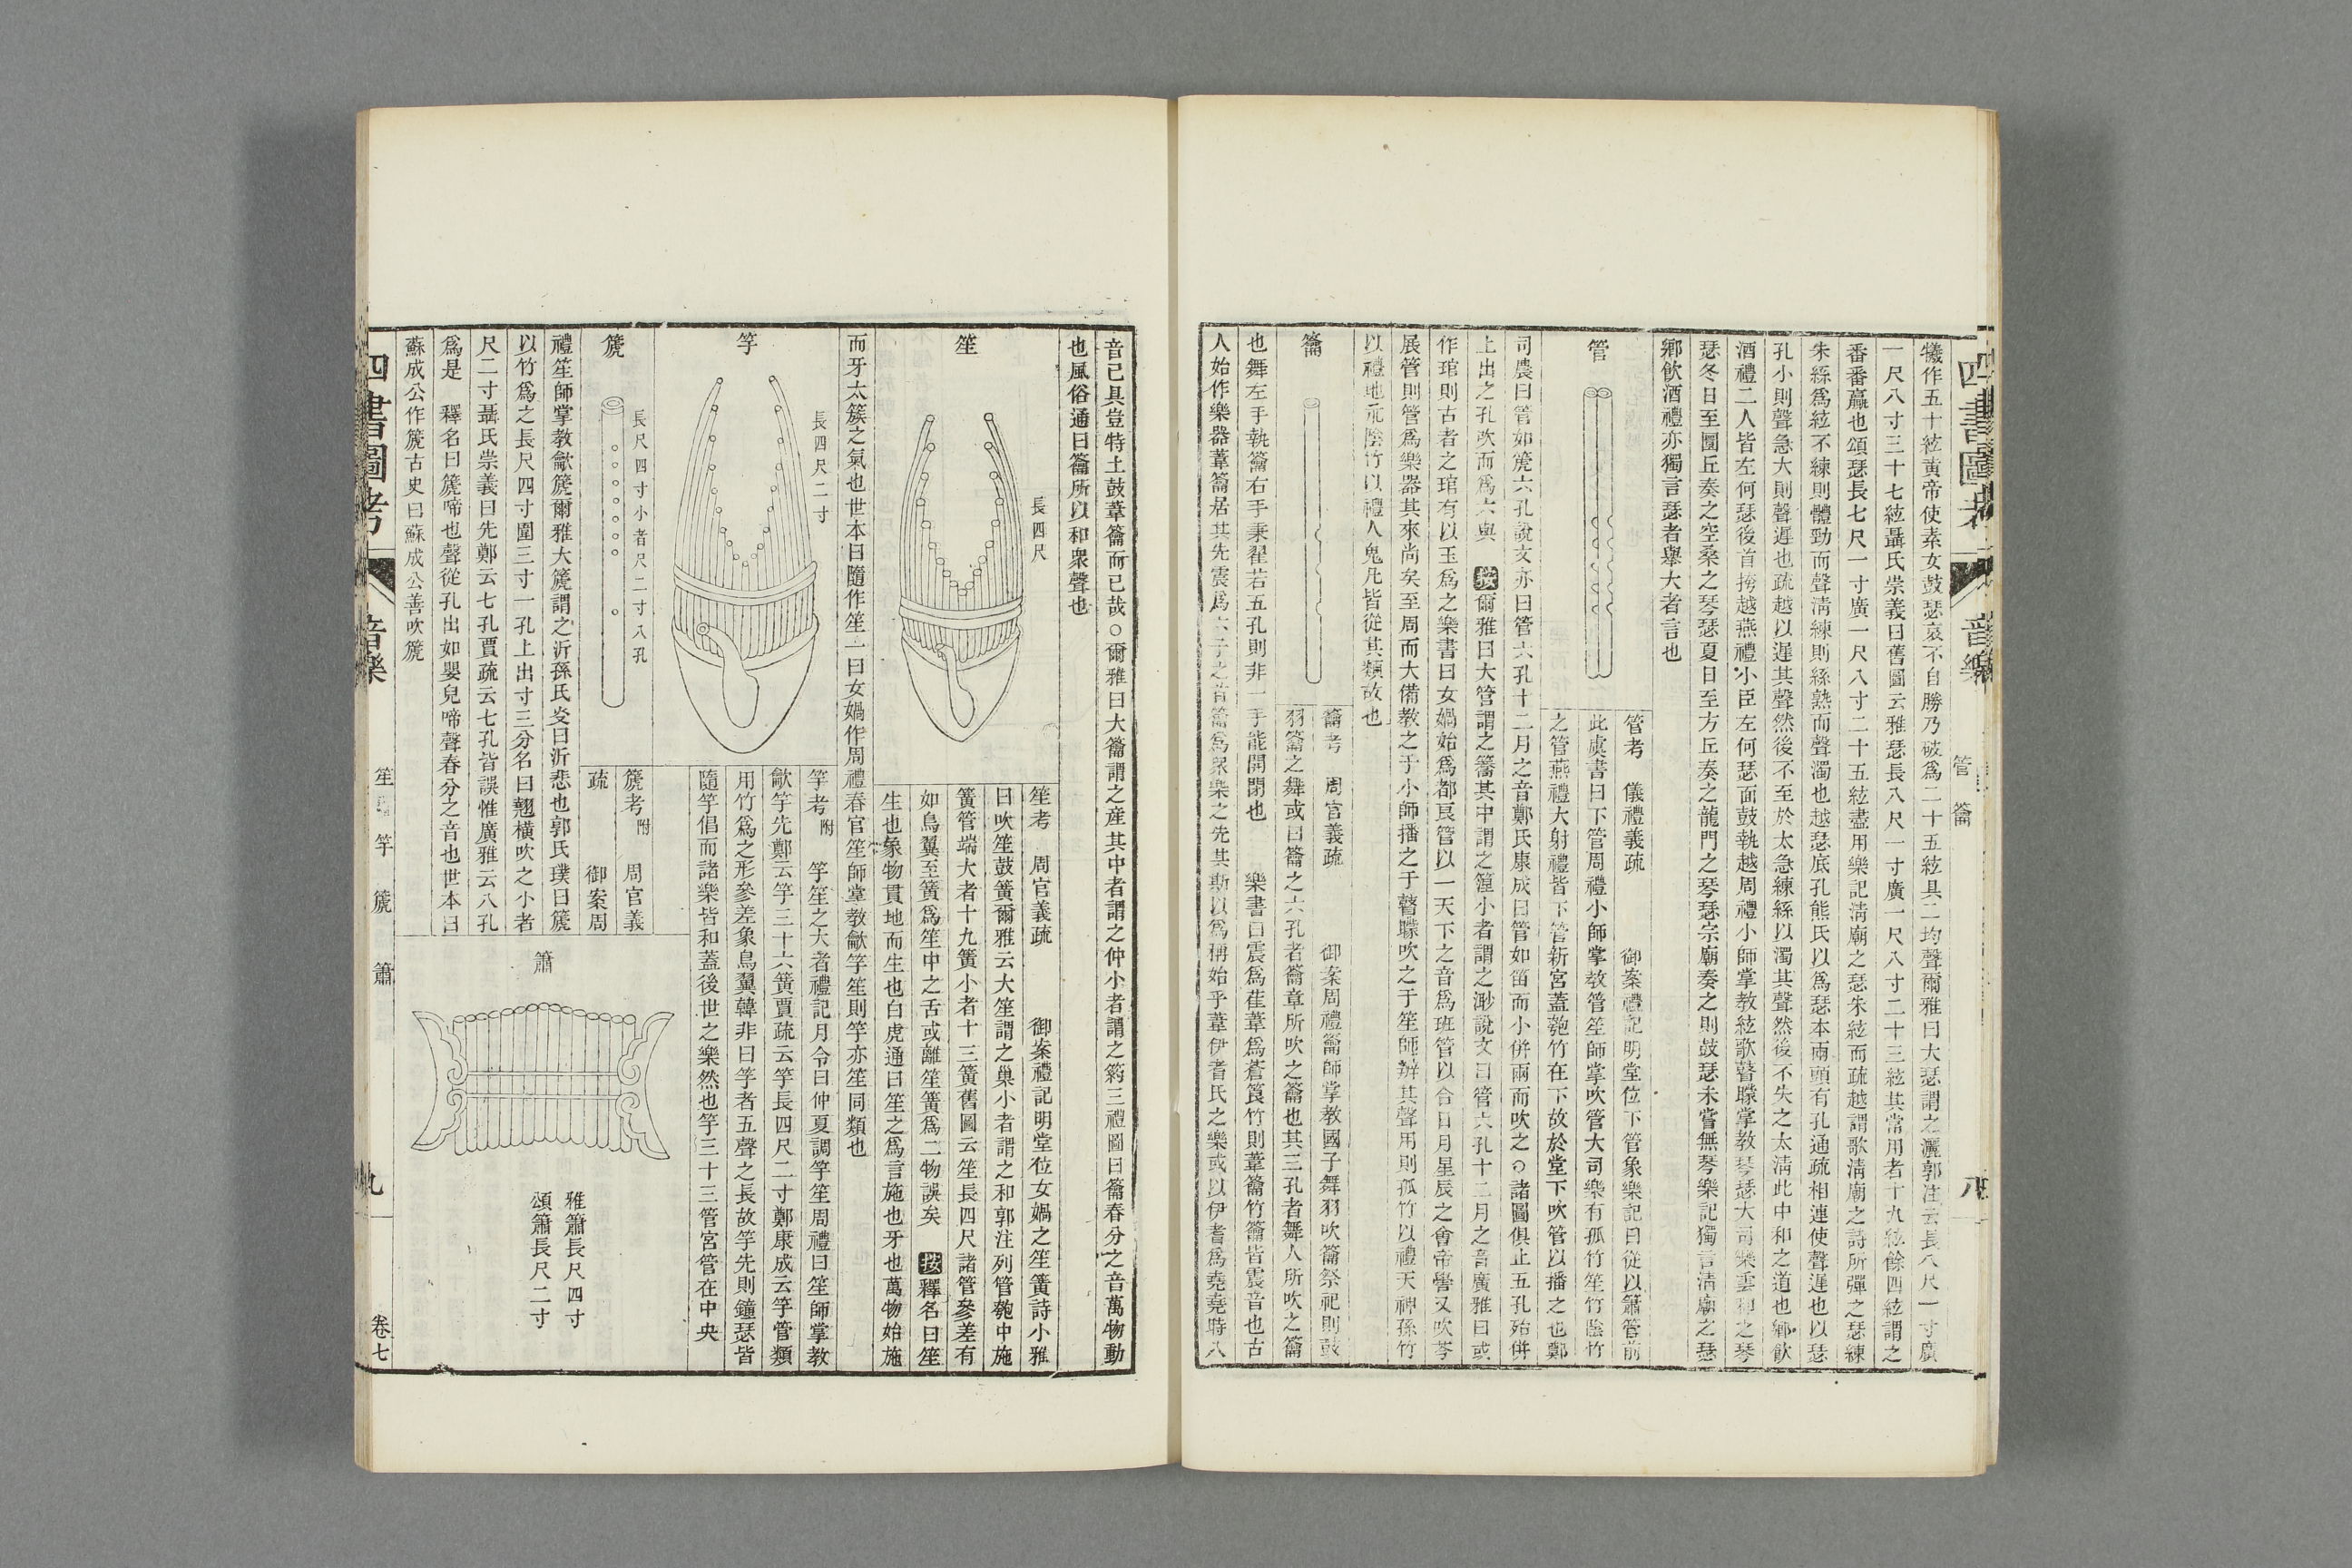 四書圖考
音樂
管　籥
八
犧作五十絃黄帝使素女鼓瑟哀不自勝乃破爲二十五絃具二均聲爾雅曰大瑟謂之灑郭注云長八尺一寸廣
一尺八寸三十七絃聶氏崇義曰舊圖云雅瑟長八尺一寸廣一尺八寸二十三絃其常用者十九絃餘四絃謂之
番番贏也頌瑟長七尺一寸廣一尺八寸二十五絃盡用樂記淸廟之瑟朱絃而疏越謂歌淸廟之詩所彈之瑟練
朱絲爲絃不練則體勁而聲淸練則絲熟而聲濁也越瑟底孔熊氏以爲瑟本兩頭有孔通疏相連使聲遲也以瑟
孔小則聲急大則聲遲也疏越以遲其聲然後不至於太急練絲以濁其聲然後不失之太淸此中和之道也鄕飮
酒禮二人皆左何瑟後首挎越燕禮小臣左何瑟面鼓執越周禮小師掌教絃歌瞽矇掌教琴瑟大司樂雲和之琴
瑟冬日至圜丘奏之空桑之琴瑟夏日至方丘奏之龍門之琴瑟宗廟奏之則鼓瑟未嘗無琴樂記獨言淸廟之瑟
鄕飮酒禮亦獨言瑟者舉大者言也
管
管考　儀禮義疏　御案禮記明堂位下管象樂記曰從以簫管前
此虞書曰下管周禮小師掌教管笙師掌吹管大司樂有孤竹笙竹陰竹
之管燕禮大射禮皆下管新宮蓋匏竹在下故於堂下吹管以播之也鄭
司農曰管如箎六孔說文亦曰管六孔十二月之音鄭氏康成曰管如笛而小併兩而吹之○諸圖俱止五孔殆併
上出之孔吹而爲六與　按爾雅曰大管謂之簥其中謂之篞小者謂之篎說文曰管六孔十二月之音廣雅曰或
作琯則古者之琯有以玉爲之樂書曰女媧始爲都良管以一天下之音爲班管以合日月星辰之會帝嚳又吹苓
展管則管爲樂器其來尚矣至周而大備教之于小師播之于瞽矇吹之于笙師辨其聲用則孤竹以禮天神孫竹
以禮地示陰竹以禮人鬼凡皆從其類故也
籥
籥考　周官義疏　御案周禮籥師掌教國子舞羽吹籥祭祀則鼓
羽籥之舞或曰籥之六孔者籥章所吹之籥也其三孔者舞人所吹之籥
也舞左手執籥右手秉翟若五孔則非一手能開閉也　樂書曰震爲萑葦爲蒼筤竹則葦籥竹籥皆震音也古
人始作樂器葦籥居其先震爲六子之首籥爲衆樂之先其斯以爲稱始乎葦伊耆氏之樂或以伊耆爲堯堯時八
音已具豈特土鼓葦籥而已哉○爾雅曰大籥謂之産其中者謂之仲小者謂之箹三禮圖曰籥春分之音萬物動
也風俗通曰籥所以和衆聲也
笙
長四尺
笙考　周官義疏　御案禮記明堂位女媧之笙簧詩小雅
曰吹笙鼓簧爾雅云大笙謂之巢小者謂之和郭注列管匏中施
簧管端大者十九簧小者十三簧舊圖云笙長四尺諸管參差有
如鳥翼至簧爲笙中之舌或離笙簧爲二物誤矣　按釋名曰笙
生也象物貫地而生也白虎通曰笙之爲言施也牙也萬物始施
而牙太簇之氣也世本曰隨作笙一曰女媧作周禮春官笙師掌教龡竽笙則竽亦笙同類也
竽
長四尺二寸
竽考附　竽笙之大者禮記月令曰仲夏調竽笙周禮曰笙師掌教
龡竽先鄭云竽三十六簧賈疏云竽長四尺二寸鄭康成云竽管類
用竹爲之形參差象鳥翼韓非曰竽者五聲之長故竽先則鐘瑟皆
隨竽倡而諸樂皆和蓋後世之樂然也竽三十三管宮管在中央
箎
長尺四寸小者尺二寸八孔
箎考附　周官義
疏　御案周
禮笙師掌教龡箎爾雅大箎謂之沂孫氏炎曰沂悲也郭氏璞曰箎
以竹爲之長尺四寸圍三寸一孔上出寸三分名曰翹橫吹之小者
尺二寸聶氏崇義曰先鄭云七孔賈疏云七孔皆誤惟廣雅云八孔
爲是　釋名曰箎啼也聲從孔出如嬰兒啼聲春分之音也世本曰
蘇成公作箎古史曰蘇成公善吹箎
簫
雅簫長尺四寸
頌簫長尺二寸
四書圖考
音樂
笙　竽　箎　簫
九
卷七